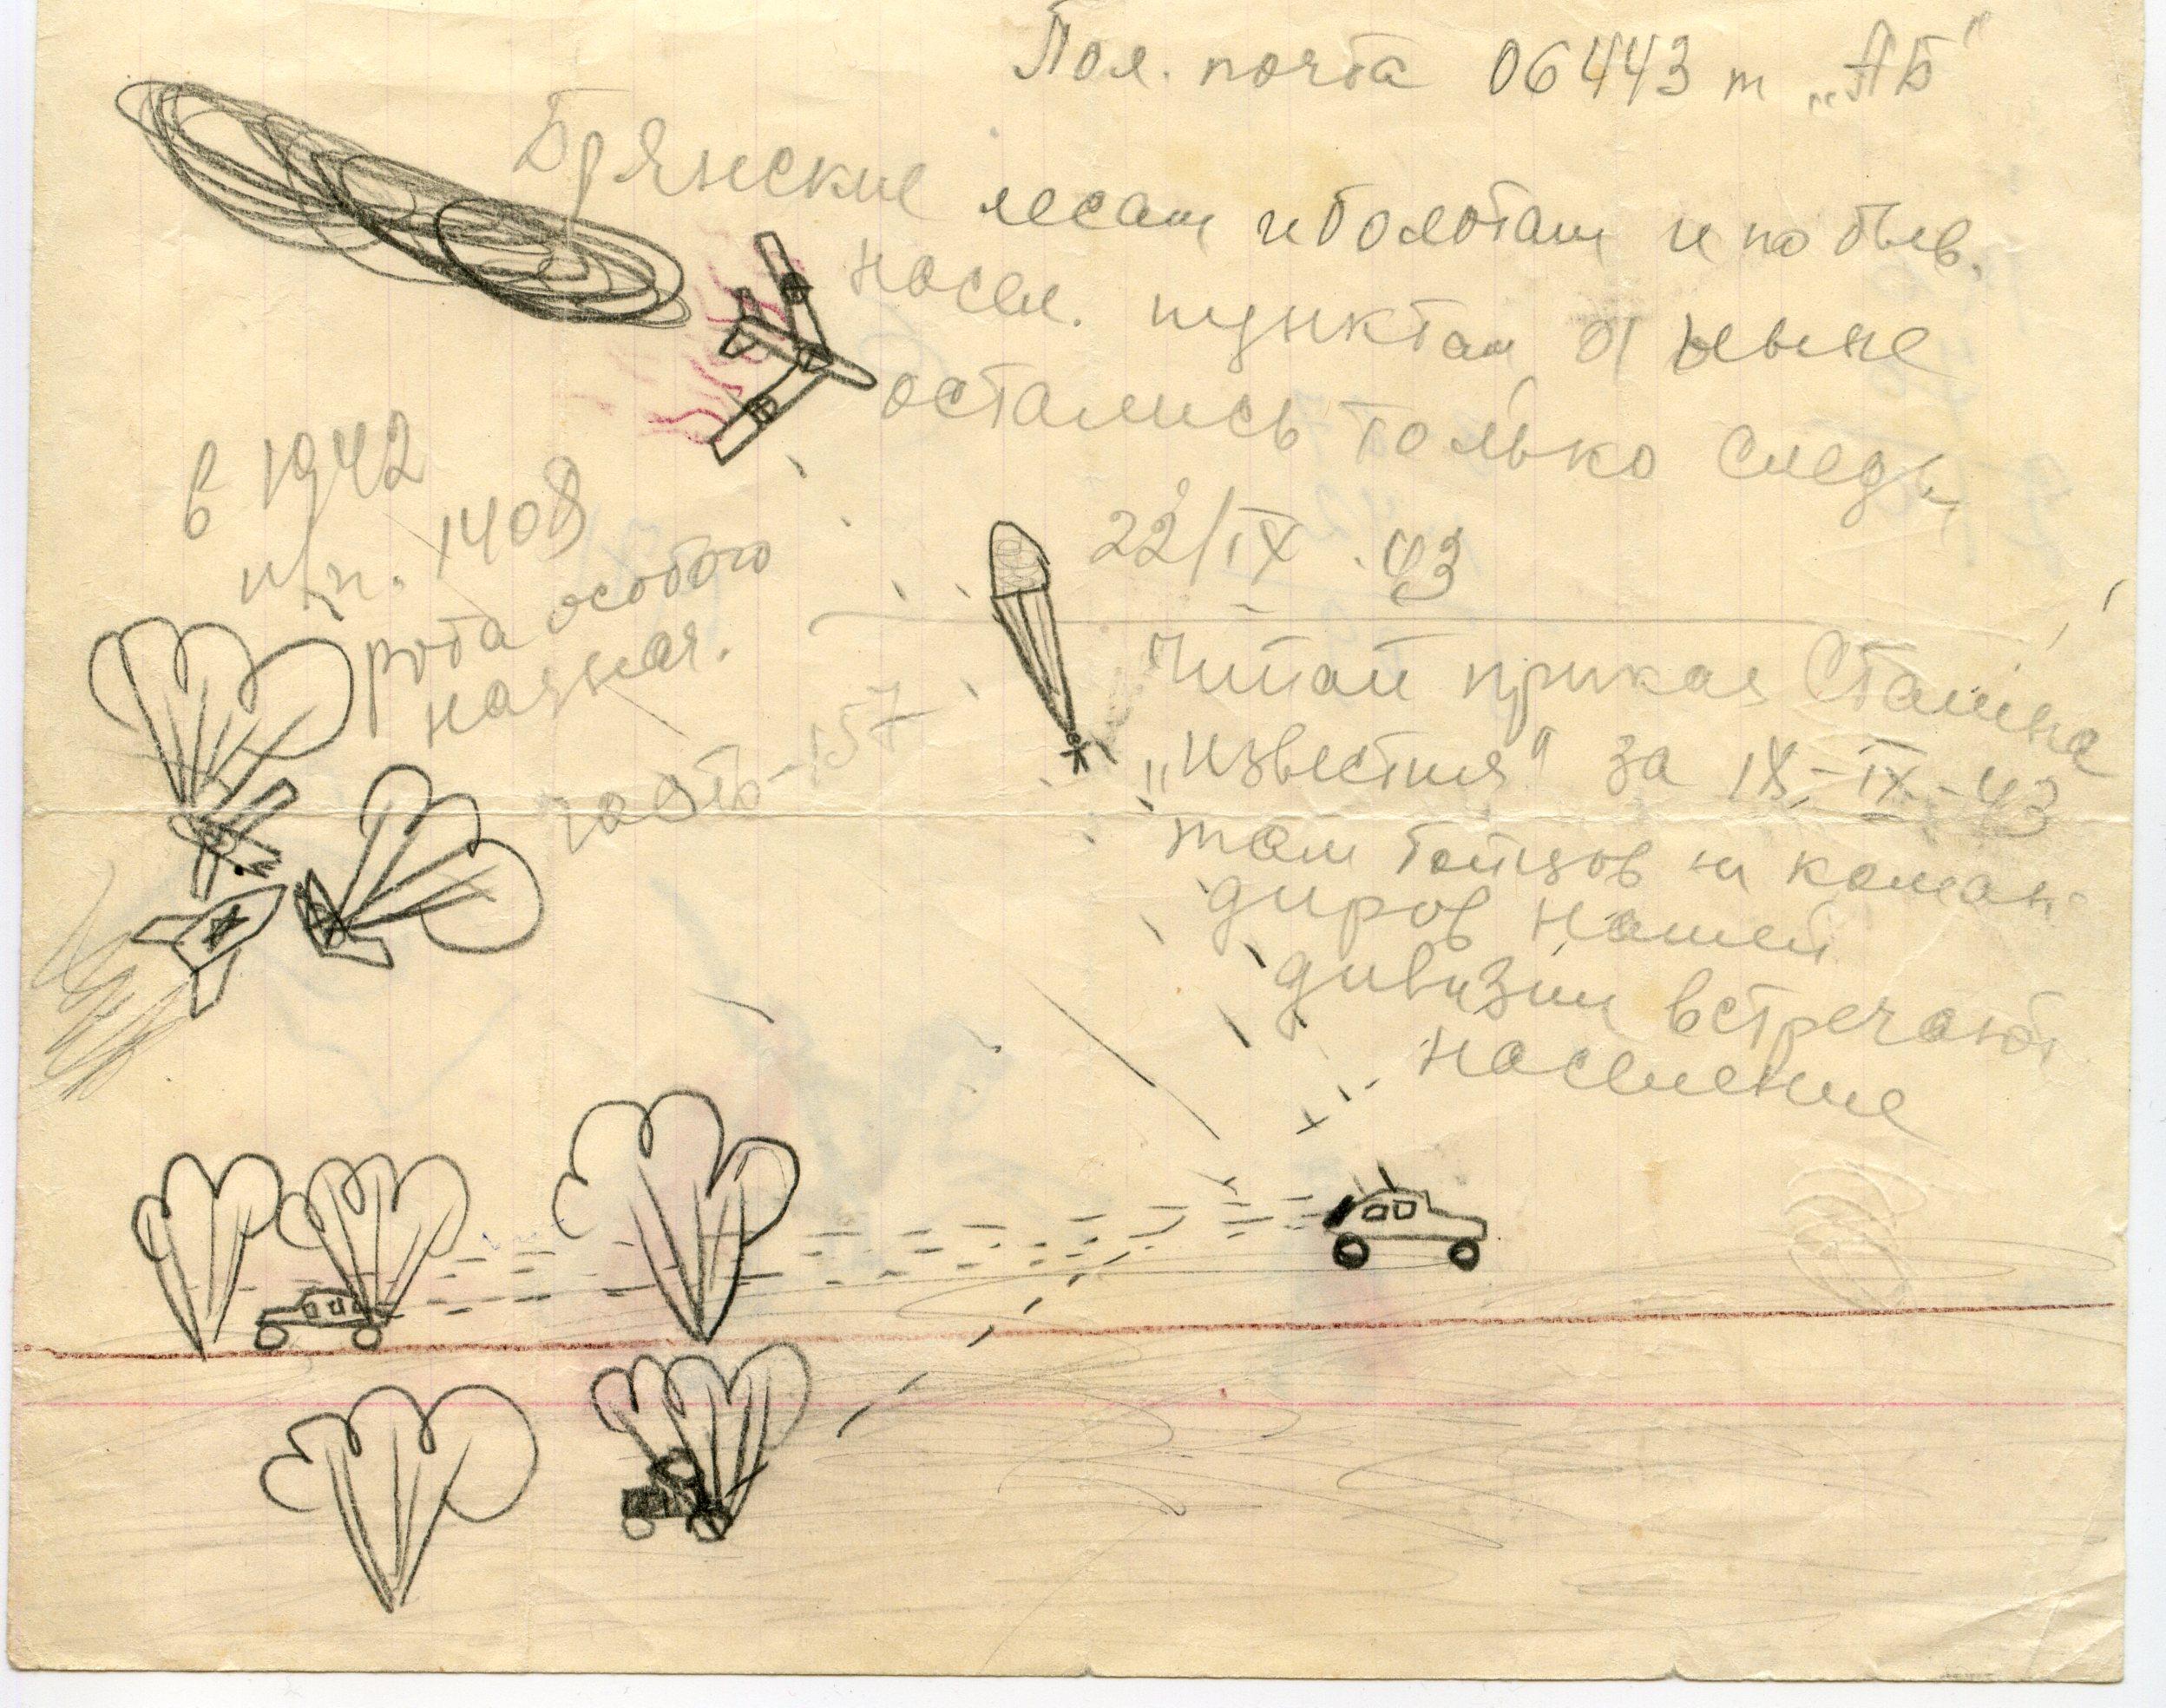 Пол. почта 06443 т „АБ"
Брянские лесам и болотам и по быв.
насел. пунктам и ныне
остались только следы
22/IX.43
в 1942
п/п. 1408
рота особого
назнач.
часть-157
Читай приказ Сталина
„Известия" за IX-43
там бойцов и коман-
диров нашей
дивизии встречают
население